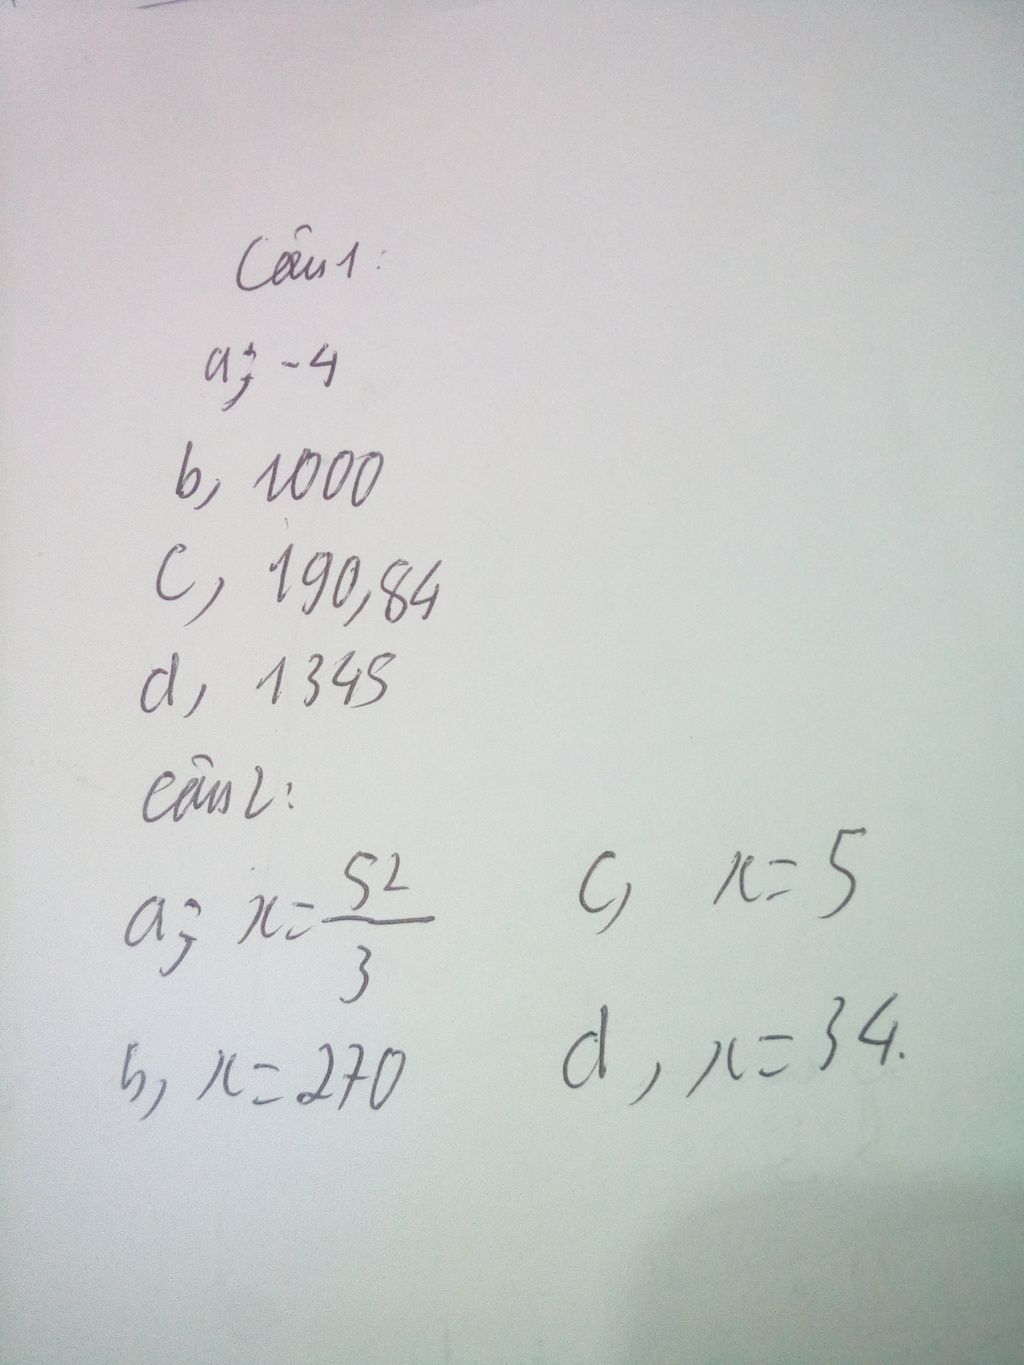 Câu 1:
a; -4
b, 1000
c, 190,84
d, 1345
Câu 2:
a; x = 52/3
b, x = 270
c, x = 5
d, x = 34.